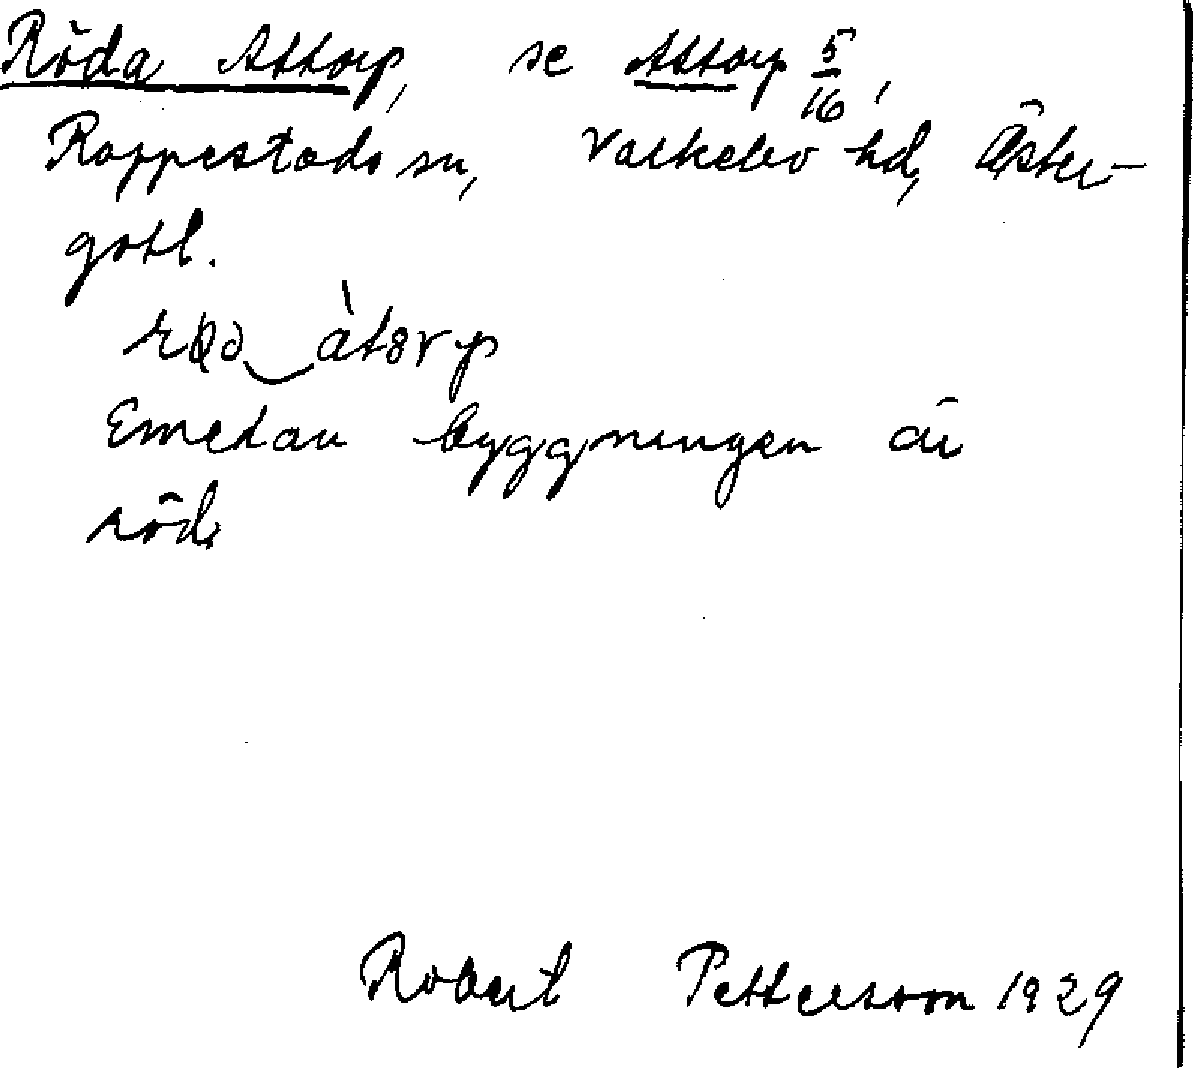 Röda Attorp, se Attorp 5/16,
Rappestads sn, Valkebo hd, Öster-
götl.
Emedan byggningen är
röd.
Robert Pettersson 1929